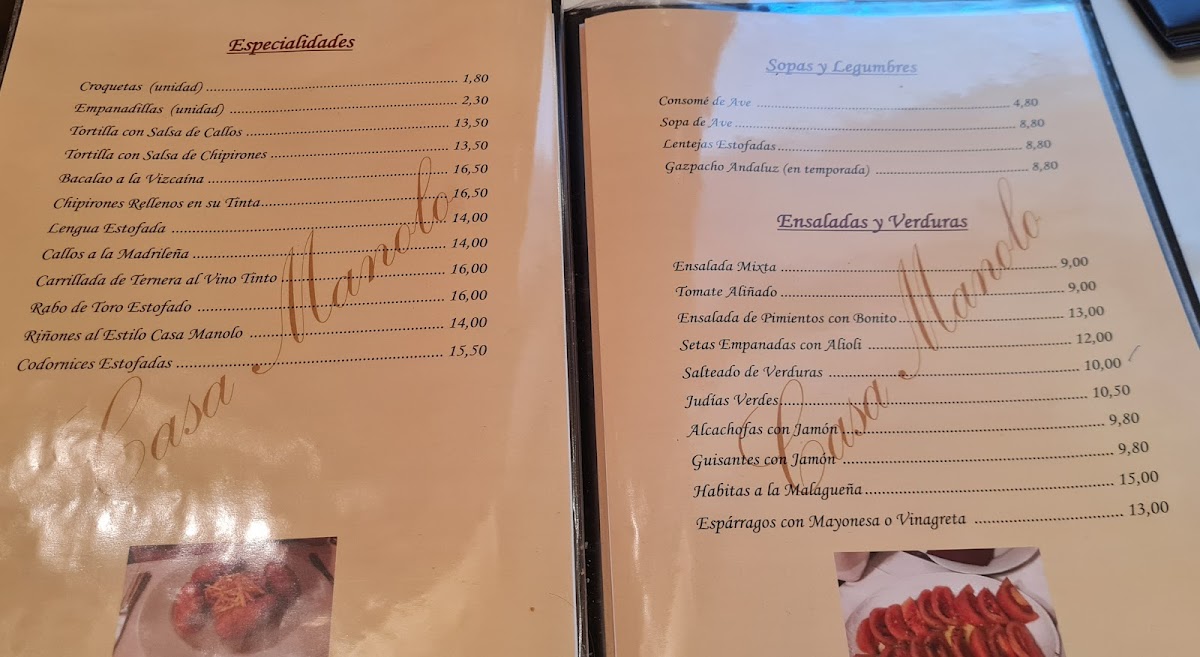 Especialidades
Croquetas (unidad) 1,80
Empanadillas (unidad) 2,30
Tortilla con Salsa de Callos 13,50
Tortilla con Salsa de Chipirones 13,50
Bacalao a la Vizcaína 16,50
Chipirones Rellenos en su Tinta 16,50
Lengua Estofada 14,00
Callos a la Madrileña 14,00
Carrillada de Ternera al Vino Tinto 16,00
Rabo de Toro Estofado 16,00
Riñones al Estilo Casa Manolo 14,00
Codornices Estofadas 15,50
Casa Manolo
Sopas y Legumbres
Consomé de Ave 4,80
Sopa de Ave 8,80
Lentejas Estofadas 8,80
Gazpacho Andaluz (en temporada) 8,80
Ensaladas y Verduras
Ensalada Mixta 9,00
Tomate Aliñado 9,00
Ensalada de Pimientos con Bonito 13,00
Setas Empanadas con Alioli 12,00
Salteado de Verduras 10,00
Judías Verdes 10,50
Alcachofas con Jamón 9,80
Guisantes con Jamón 9,80
Habitas a la Malagueña 15,00
Espárragos con Mayonesa o Vinagreta 13,00
Casa Manolo